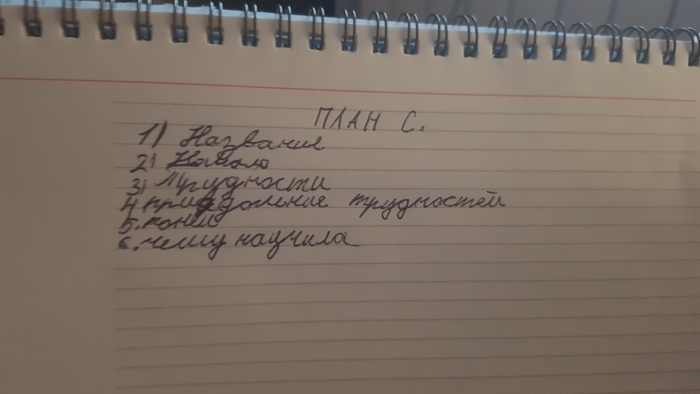 ПЛАН С.
1) Название
2) Начало
3) Трудности
4 приодоление трудностей
5. конец
6. чему научила